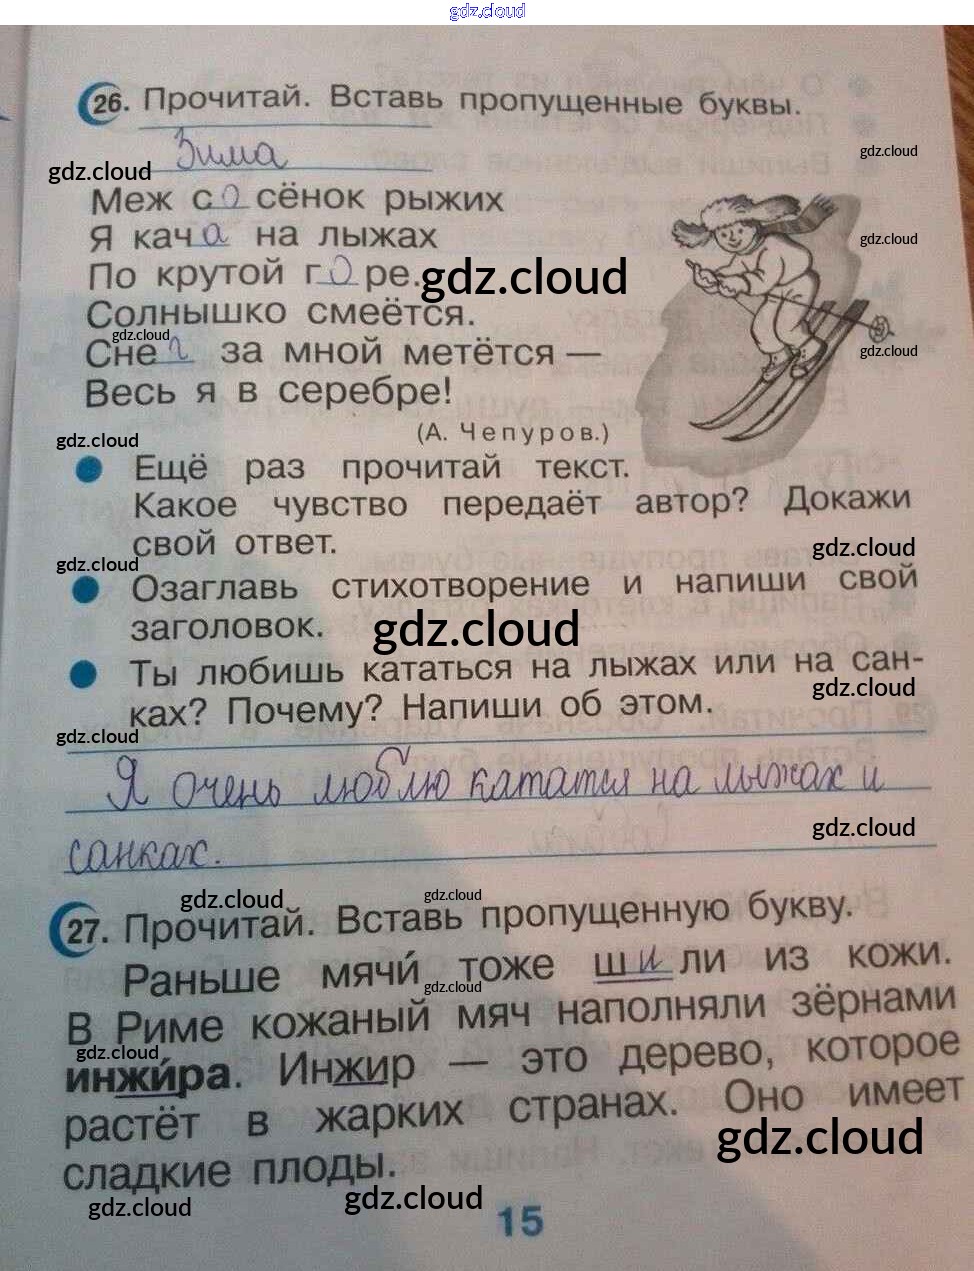 gdz.cloud
26. Прочитай. Вставь пропущенные буквы.
Зима
gdz.cloud
gdz.cloud
Меж сосёнок рыжих
Я кача на лыжах
gdz.cloud
По крутой горе.
gdz.cloud
Солнышко смеётся.
gdz.cloud
Снег за мной метётся —
gdz.cloud
Весь я в серебре!
(А. Чепуров.)
gdz.cloud
Ещё раз прочитай текст.
Какое чувство передаёт автор? Докажи
свой ответ.
gdz.cloud
gdz.cloud
Озаглавь стихотворение и напиши свой
заголовок.
gdz.cloud
Ты любишь кататься на лыжах или на сан-
gdz.cloud
ках? Почему? Напиши об этом.
gdz.cloud
Я очень люблю кататся на лыжах и
gdz.cloud
санках.
gdz.cloud
gdz.cloud
27. Прочитай. Вставь пропущенную букву.
Раньше мячи́ тоже шили из кожи.
gdz.cloud
В Риме кожаный мяч наполняли зёрнами
gdz.cloud
инжи́ра. Инжир — это дерево, которое
растёт в жарких странах. Оно имеет
gdz.cloud
сладкие плоды.
gdz.cloud
gdz.cloud
15